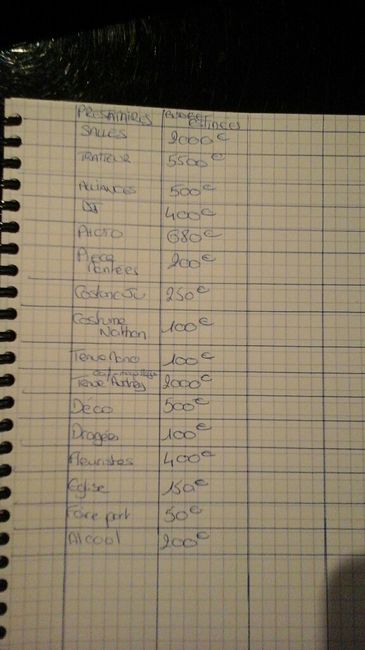 PRESTATAIRES BUDGET ESTIMÉES
SALLES 2000€
TRAITEUR 5500€
ALLIANCES 500€
DJ 400€
PHOTO 680€
Pièce montées 200€
Costume JC 250€
Costume Nathan 100€
Tenue Nono 100€
Tenue Audrey 2000€
Déco 500€
Dragées 100€
Fleuristes 400€
Eglise 150€
Faire part 50€
Alcool 200€